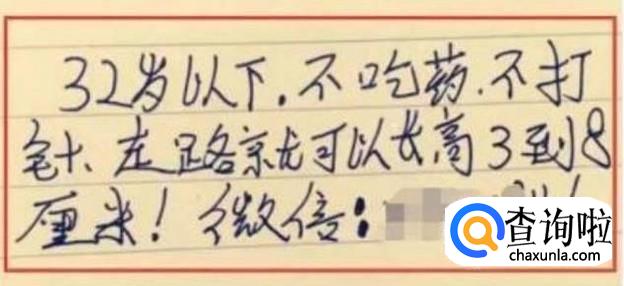 32岁以下.不吃药.不打
针、走路就可以长高3到8
厘米！微信：
查询啦
chaxunla.com